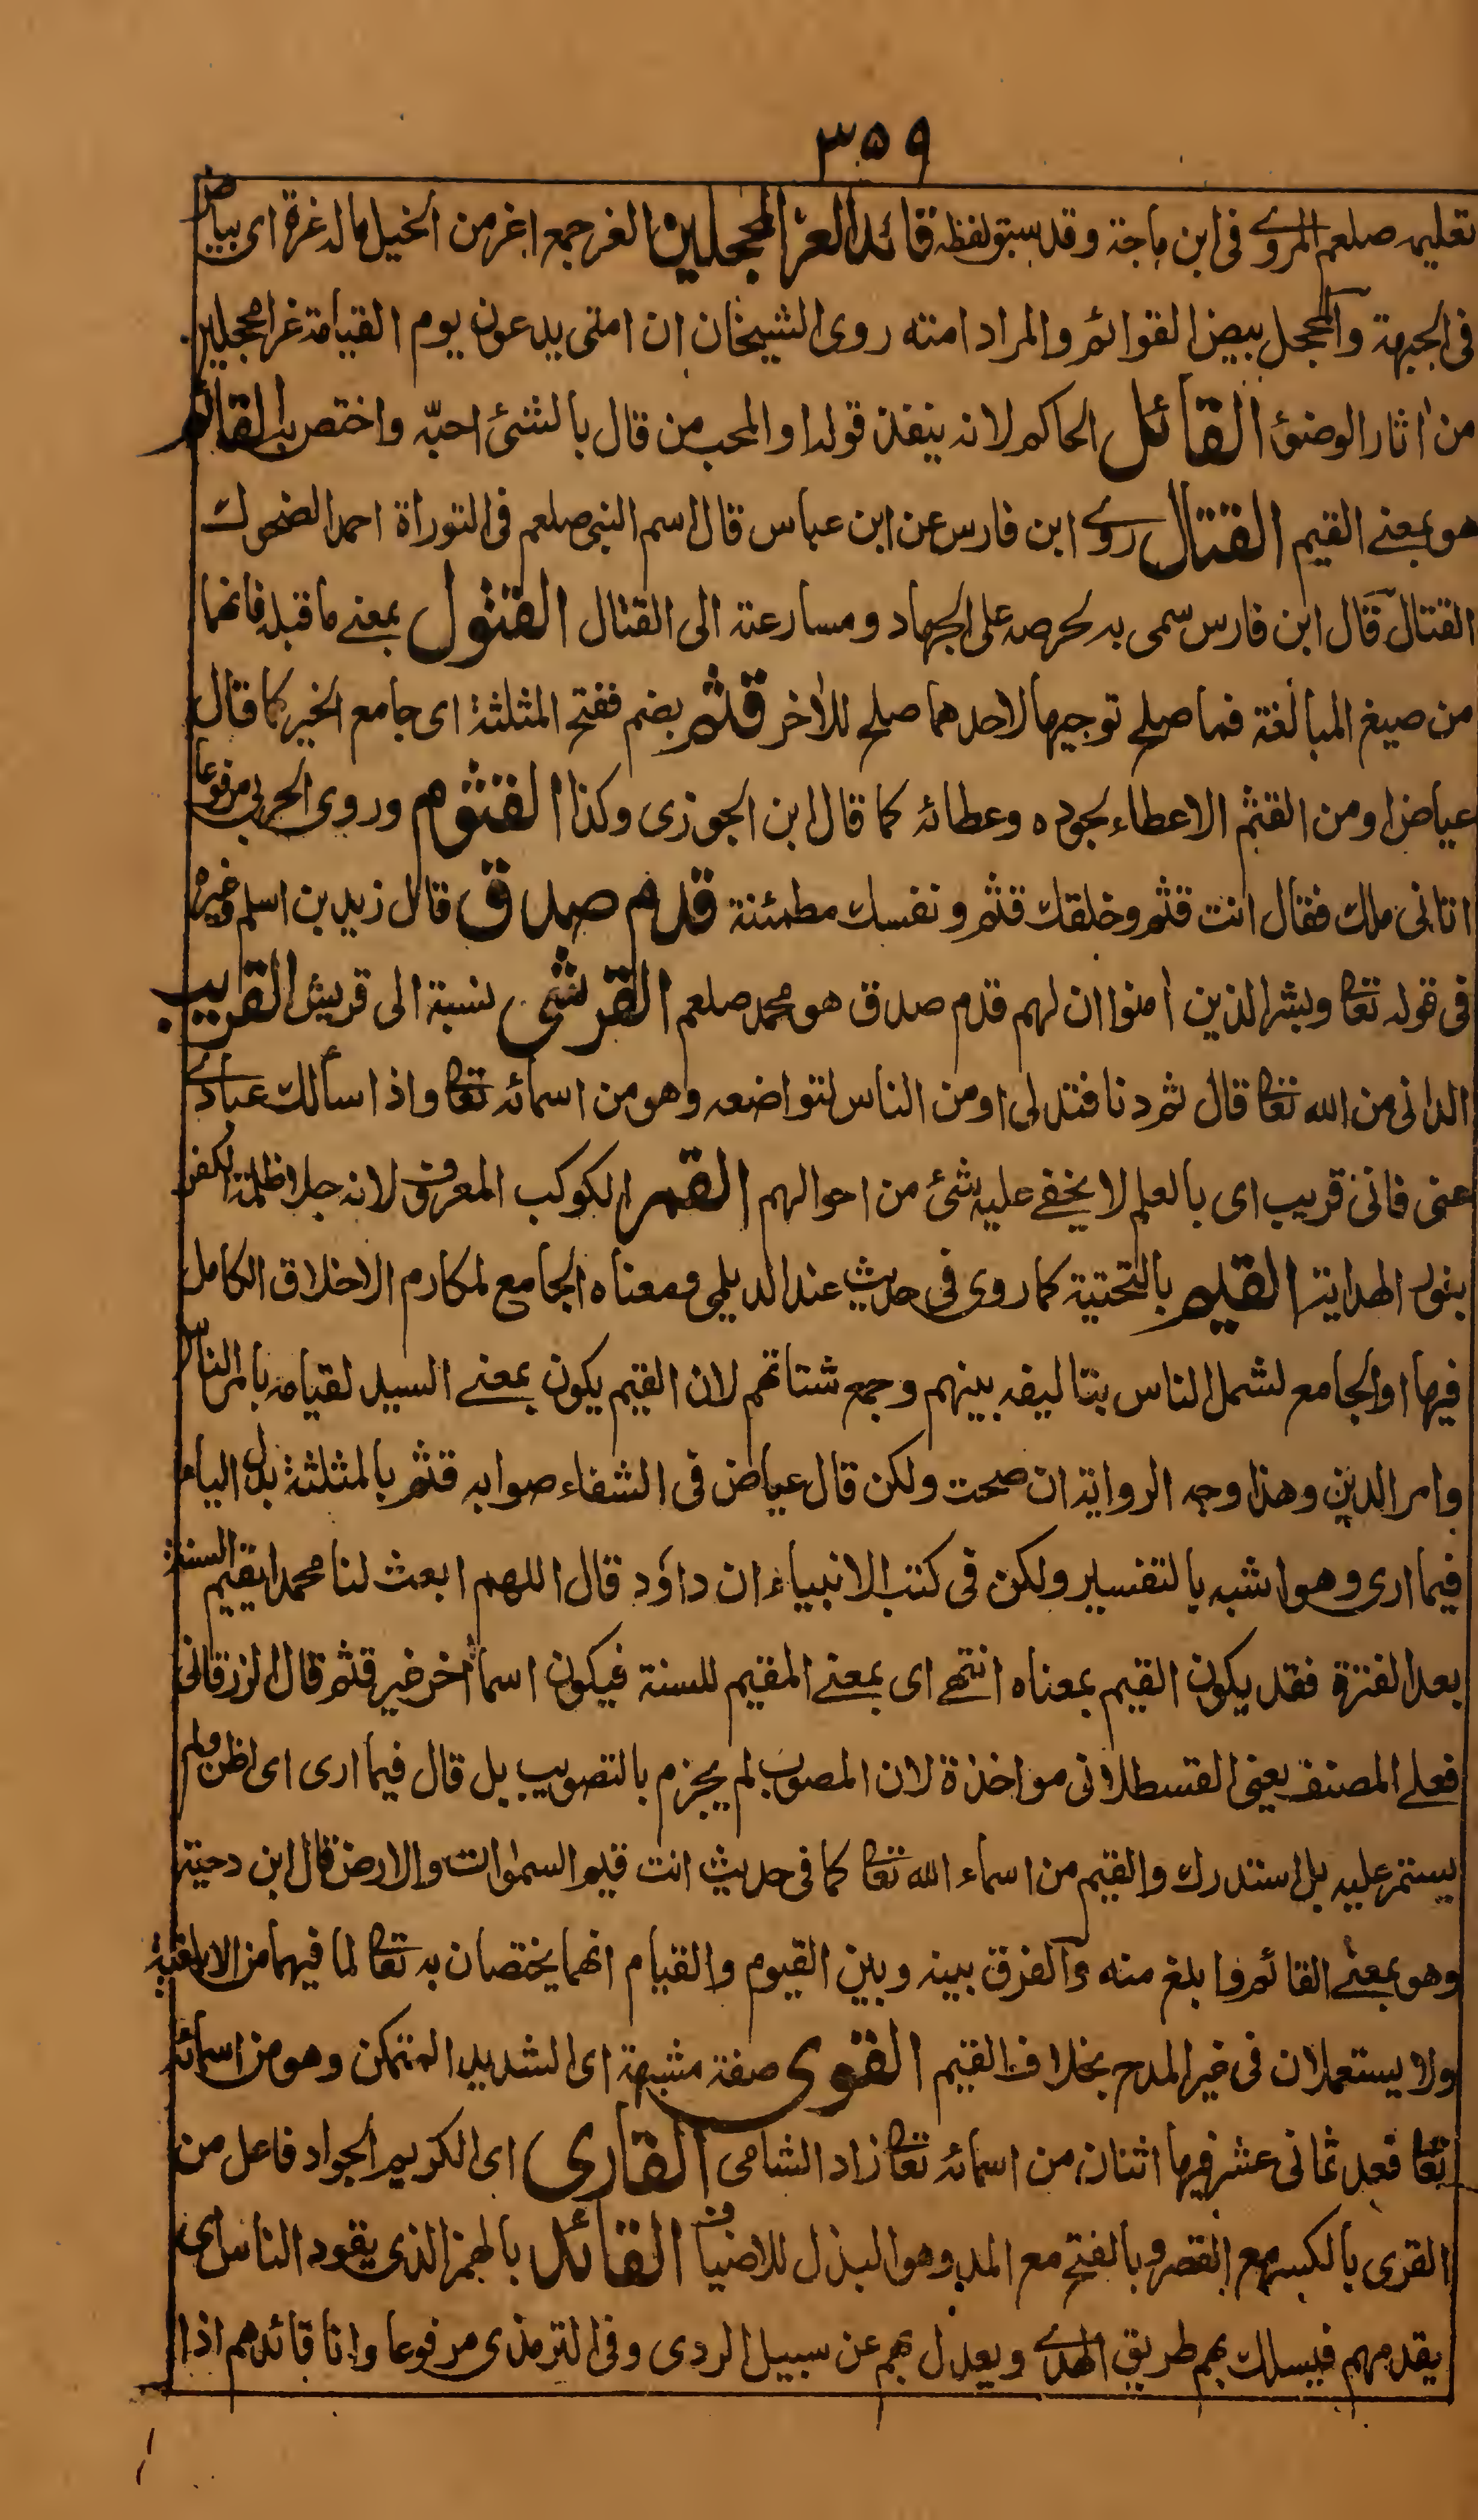 ٣٥٩
تعليمه صلعم المروي فى ابن ماجة وقد سبق لفظه قائد الغر المحجلين الغر جمع اغر من الخيل ماله غرة اى بياض
فى الجبهة والمحجل بيض القوائم والمراد امته روى الشيخان ان امتى يدعون يوم القيامة غرا محجلين
من اثار الوضوٴ القائل الحاكم لانه ينفذ قوله او المحب من قال بالشئ احبّه واختص به القائم
هو بمعنے القيم القتال روى ابن فارس عن ابن عباس قال اسم النبى صلعم فى التوراة احمد الضحوك
القتال قال ابن فارس سمى به لحرصه على الجهاد ومسارعته الى القتال القتول بمعنے ما قبله فانهما
من صيغ المبالغة فما صلح توجيها لاحدهما صلح للاٰخر قثم بضم ففتح المثلثة اى جامع الخير كما قال
عياض او من القثم الاعطاء لجوده وعطائه كما قال ابن الجوزى وكذا القثوم وروى الحربى مرفوعا
اتانى ملك فقال انت قثم وخلقك قثم ونفسك مطمئنة قدم صدق قال زيد بن اسلم وغيره
فى قوله تعا وبشر الذين اٰمنوا ان لهم قدم صدق هو محمد صلعم القرشى نسبة الى قريش القريب
الدانى من الله تعا قال ثم دنا فتدلى او من الناس لتواضعه وهو من اسمائه تعا واذا سألك عبادے
عنى فانى قريب اى بالعلم لا يخفے عليه شئ من احوالهم القمر الكوكب المعروف لانه جلا ظلمة الكفر
بنور الهداية القيم بالتحتية كما روى فى حديث عند الديلمى ومعناه الجامع لمكارم الاخلاق الكامل
فيها او الجامع لشمل الناس بتاليفه بينهم وجمع شتاتهم لان القيم يكون بمعنے السيد لقيامه بامر الناس
وامر الدين وهذا وجه الرواية ان صحت ولكن قال عياض فى الشفاء صوابه قثم بالمثلثة بدل الياء
فيما ارى وهو اشبه بالتفسير ولكن فى كتب الانبياء ان داوٗد قال اللهم ابعث لنا محمدا يقيم السنة
بعد الفترة فقد يكون القيم بمعناه انتهے اى بمعنے المقيم للسنة فيكون اسما اٰخر غير قثم قال الزرقانى
فعلے المصنف يعنى القسطلانى مواخذة لان المصوب لم يجزم بالتصويب بل قال فيما ارى اى اظن ولم
يستمر عليه بل استدرك والقيم من اسماء الله تعا كما فى حديث انت قيم السمٰوات والارض قال ابن دحية
وهو بمعنے القائم وابلغ منه والفرق بينه وبين القيوم والقيام انهما يختصان به تعا لما فيهما من الابلغية
ولا يستعملان فى غير المدح بخلاف القيم القوى صفة مشبهة اى الشديد المتمكن وهو من اسمائه
تعا فعد ثمانى عشر فيها اثنان من اسمائه تعا زاد الشامى القارى اى الكريم الجواد فاعل من
القرى بالكسر مع القصر وبالفتح مع المد وهو البذل للاضياف القائد بالهمز الذى يقود الناس اى
يقدمهم فيسلك بهم طريق الهدے ويعدل بهم عن سبيل الردى وفى الترمذى مرفوعا وانا قائدهم اذا